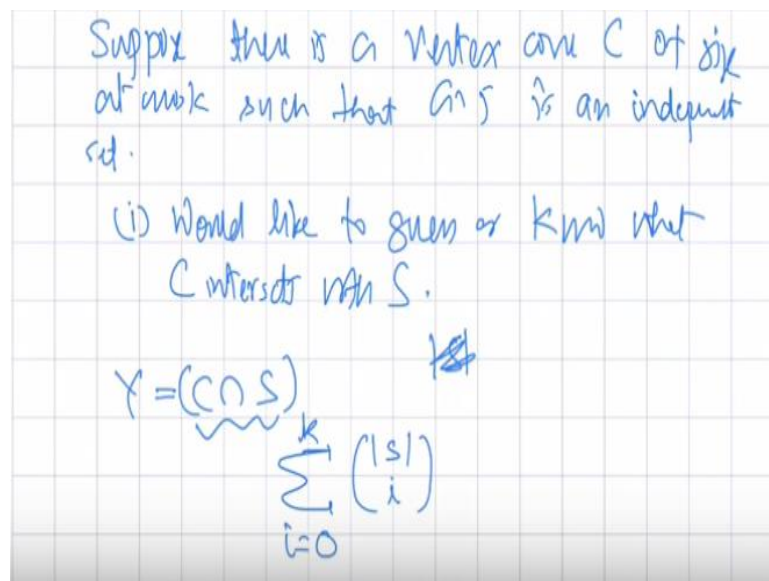 Suppose there is a vertex cover C of size
at most k such that G - S is an independent
set.
(i) Would like to guess or know what
C intersects with S.
Y = (C ∩ S)
k
∑ (|S| i)
i=0